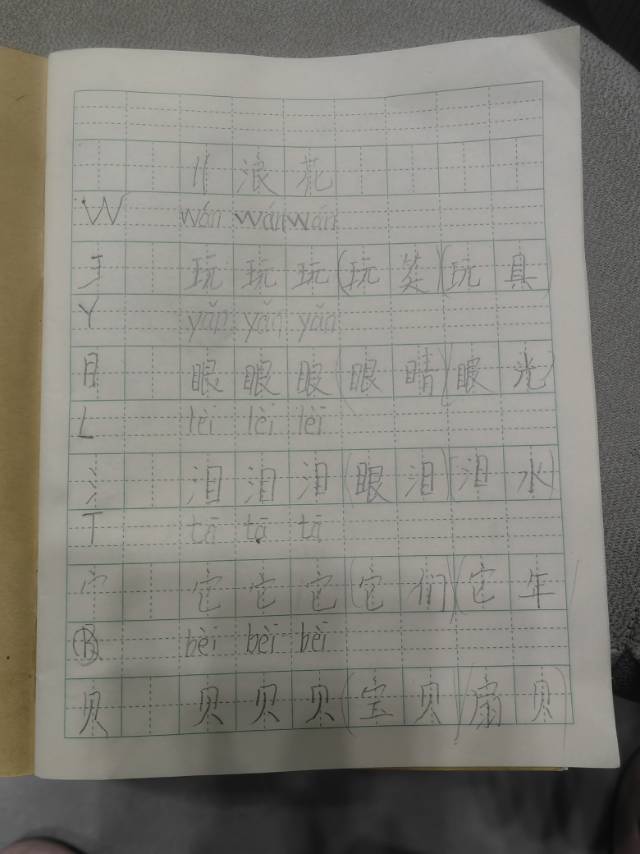 11 浪花
W wán wán wán
王 玩 玩 玩 (玩笑)(玩具)
Y yǎn yǎn yǎn
目 眼 眼 眼 (眼睛)(眼光)
L lèi lèi lèi
氵 泪 泪 泪 (眼泪)(泪水)
T tā tā tā
宀 它 它 它 (它们)(它年)
B bèi bèi bèi
贝 贝 贝 贝 (宝贝)(扇贝)